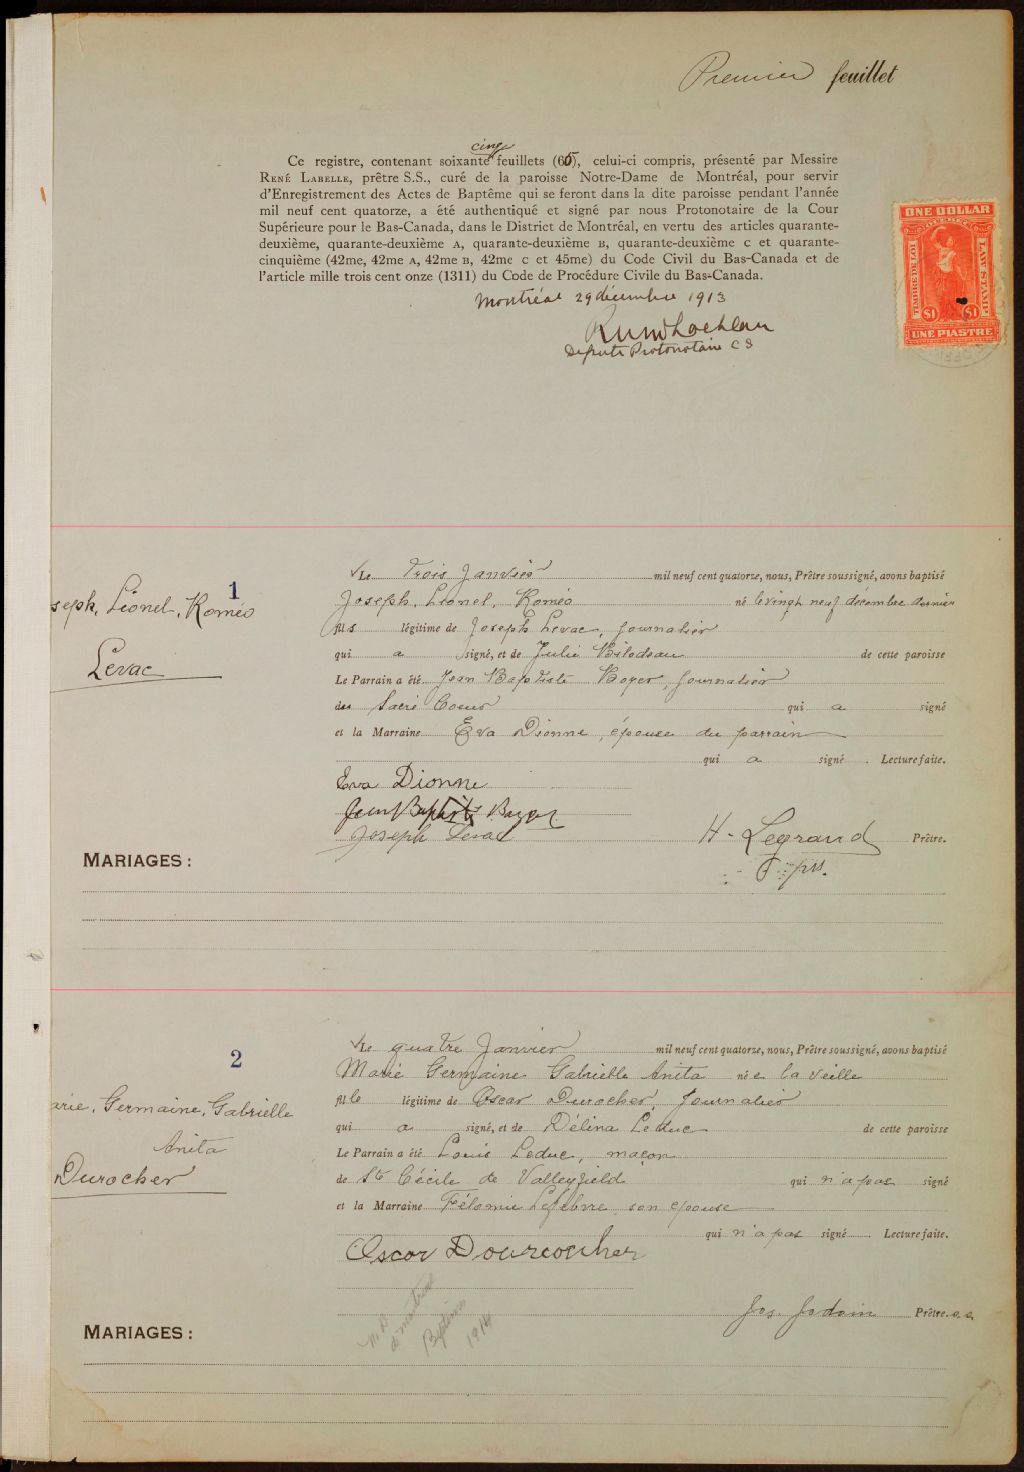 Premier feuillet
cinq
Ce registre, contenant soixante feuillets (65), celui-ci compris, présenté par Messire
René Labelle, prêtre S.S., curé de la paroisse Notre-Dame de Montréal, pour servir
d'Enregistrement des Actes de Baptême qui se feront dans la dite paroisse pendant l'année
mil neuf cent quatorze, a été authentiqué et signé par nous Protonotaire de la Cour
Supérieure pour le Bas-Canada, dans le District de Montréal, en vertu des articles quarante-
deuxième, quarante-deuxième A, quarante-deuxième B, quarante-deuxième C et quarante-
cinquième (42me, 42me A, 42me B, 42me C et 45me) du Code Civil du Bas-Canada et de
l'article mille trois cent onze (1311) du Code de Procédure Civile du Bas-Canada.
Montréal 29 décembre 1913
Député Protonotaire CS
ONE DOLLAR
TIMBRE DE LOI
QUEBEC
LAW STAMP
$1 $1
UNE PIASTRE
1
seph, Lionel, Roméo
Levac
Le trois Janvier mil neuf cent quatorze, nous, Prêtre soussigné, avons baptisé
Joseph, Lionel, Roméo né le vingt neuf décembre dernier
fils légitime de Joseph Levac, journalier
qui a signé, et de Julie Bilodeau de cette paroisse
Le Parrain a été Jean Baptiste Boyer, journalier
du Sacré Coeur qui a signé
et la Marraine Eva Dionne, épouse du parrain
qui a signé. Lecture faite.
Eva Dionne
Jean Baptiste Boyer
Joseph Levac
H. Legrand Prêtre.
pss.
MARIAGES :
2
arie, Germaine, Gabrielle
Anita
Durocher
Le quatre Janvier mil neuf cent quatorze, nous, Prêtre soussigné, avons baptisé
Marie Germaine Gabrielle Anita née la veille
fille légitime de Oscar Durocher, Journalier
qui a signé, et de Délina Leduc de cette paroisse
Le Parrain a été Louis Leduc, maçon
de Ste Cécile de Valleyfield qui n'a pas signé
et la Marraine Félomie Lefebvre son épouse
qui n'a pas signé Lecture faite.
Oscar Dourcoucher
Jos. Jodoin Prêtre. s.s.
N.D.
de montréal
Baptêmes
1914
MARIAGES :